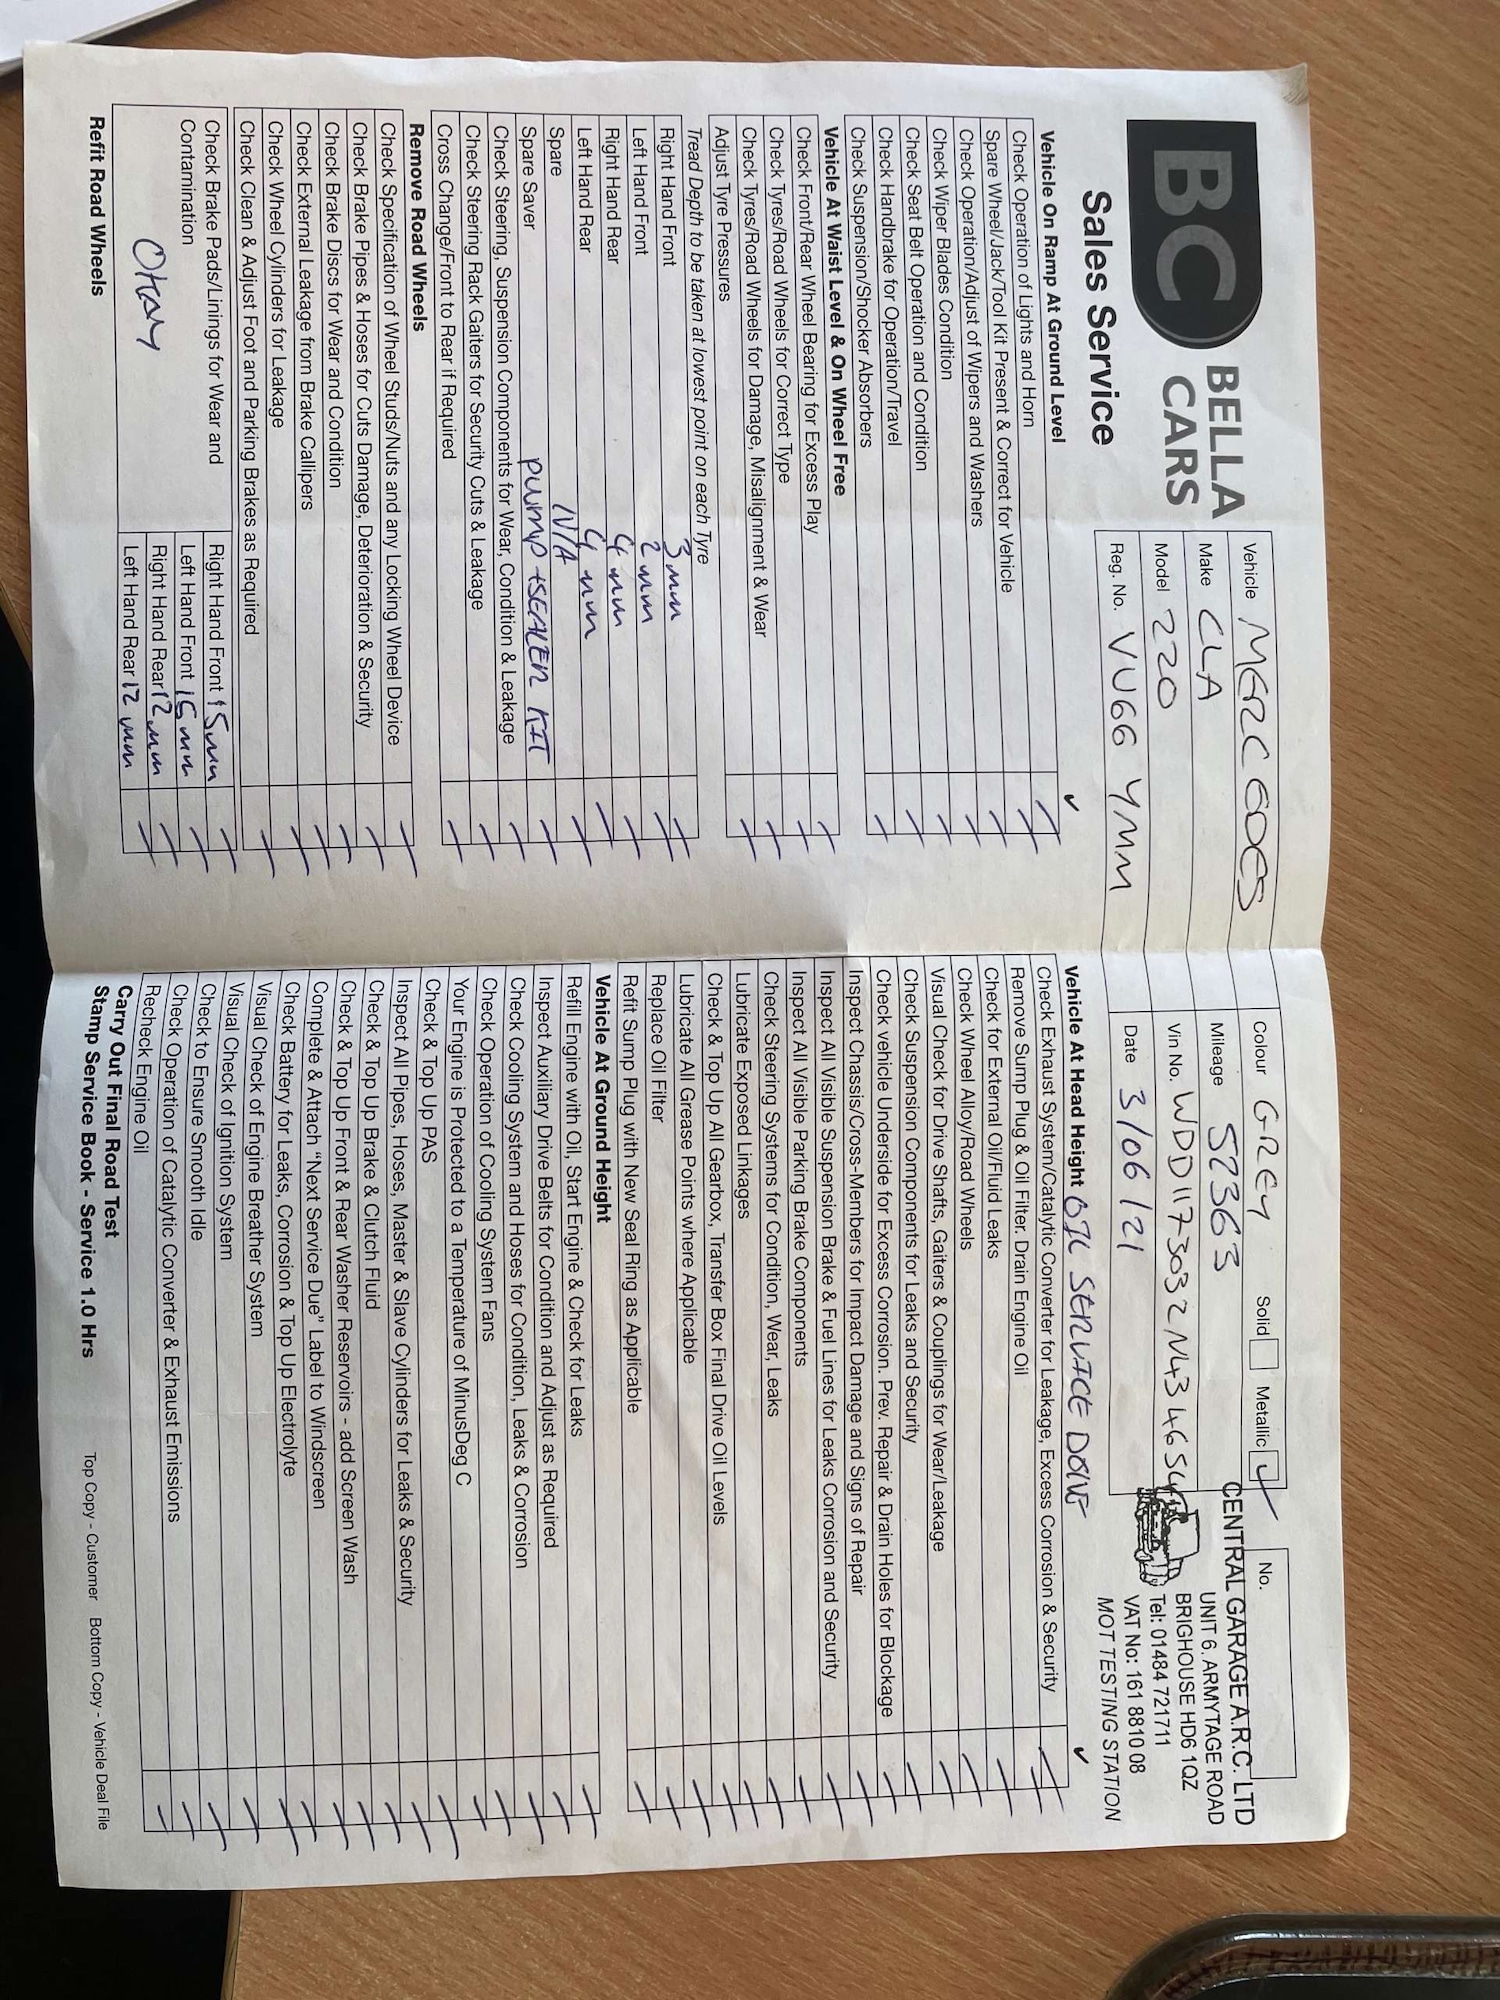 BC BELLA
CARS
Sales Service
Vehicle MERCEDES
Make CLA
Model 220
Reg. No. VU66 YMM
Colour GREY Solid Metallic ✓
Mileage 52363
Vin No. WDD1173032N434654
Date 3/06/21
No.
CENTRAL GARAGE A.R.C. LTD
UNIT 6. ARMYTAGE ROAD
BRIGHOUSE HD6 1QZ
Tel: 01484 721711
VAT No: 161 8810 08
MOT TESTING STATION
Vehicle On Ramp At Ground Level ✓
Check Operation of Lights and Horn
Spare Wheel/Jack/Tool Kit Present & Correct for Vehicle
Check Operation/Adjust of Wipers and Washers
Check Wiper Blades Condition
Check Seat Belt Operation and Condition
Check Handbrake for Operation/Travel
Check Suspension/Shocker Absorbers
Vehicle At Waist Level & On Wheel Free
Check Front/Rear Wheel Bearing for Excess Play
Check Tyres/Road Wheels for Correct Type
Check Tyres/Road Wheels for Damage, Misalignment & Wear
Adjust Tyre Pressures
Tread Depth to be taken at lowest point on each Tyre
Right Hand Front 3mm
Left Hand Front 2mm
Right Hand Rear 4mm
Left Hand Rear 4mm
Spare N/A
Spare Saver PUMP + SEALER KIT
Check Steering, Suspension Components for Wear, Condition & Leakage
Check Steering Rack Gaiters for Security Cuts & Leakage
Cross Change/Front to Rear if Required
Remove Road Wheels
Check Specification of Wheel Studs/Nuts and any Locking Wheel Device
Check Brake Pipes & Hoses for Cuts Damage, Deterioration & Security
Check Brake Discs for Wear and Condition
Check External Leakage from Brake Callipers
Check Wheel Cylinders for Leakage
Check Clean & Adjust Foot and Parking Brakes as Required
Check Brake Pads/Linings for Wear and
Contamination
OKAY
Right Hand Front 15mm
Left Hand Front 15mm
Right Hand Rear 12mm
Left Hand Rear 12mm
Refit Road Wheels
Vehicle At Head Height OIL SERVICE DONE ✓
Check Exhaust System/Catalytic Converter for Leakage, Excess Corrosion & Security
Remove Sump Plug & Oil Filter. Drain Engine Oil
Check for External Oil/Fluid Leaks
Check Wheel Alloy/Road Wheels
Visual Check for Drive Shafts, Gaiters & Couplings for Wear/Leakage
Check Suspension Components for Leaks and Security
Check vehicle Underside for Excess Corrosion. Prev. Repair & Drain Holes for Blockage
Inspect Chassis/Cross-Members for Impact Damage and Signs of Repair
Inspect All Visible Suspension Brake & Fuel Lines for Leaks Corrosion and Security
Inspect All Visible Parking Brake Components
Check Steering Systems for Condition, Wear, Leaks
Lubricate Exposed Linkages
Check & Top Up All Gearbox, Transfer Box Final Drive Oil Levels
Lubricate All Grease Points where Applicable
Replace Oil Filter
Refit Sump Plug with New Seal Ring as Applicable
Vehicle At Ground Height
Refill Engine with Oil, Start Engine & Check for Leaks
Inspect Auxiliary Drive Belts for Condition and Adjust as Required
Check Cooling System and Hoses for Condition, Leaks & Corrosion
Check Operation of Cooling System Fans
Your Engine is Protected to a Temperature of MinusDeg C
Check & Top Up PAS
Inspect All Pipes, Hoses, Master & Slave Cylinders for Leaks & Security
Check & Top Up Brake & Clutch Fluid
Check & Top Up Front & Rear Washer Reservoirs - add Screen Wash
Complete & Attach "Next Service Due" Label to Windscreen
Check Battery for Leaks, Corrosion & Top Up Electrolyte
Visual Check of Engine Breather System
Visual Check of Ignition System
Check to Ensure Smooth Idle
Check Operation of Catalytic Converter & Exhaust Emissions
Recheck Engine Oil
Carry Out Final Road Test
Stamp Service Book - Service 1.0 Hrs
Top Copy - Customer Bottom Copy - Vehicle Deal File